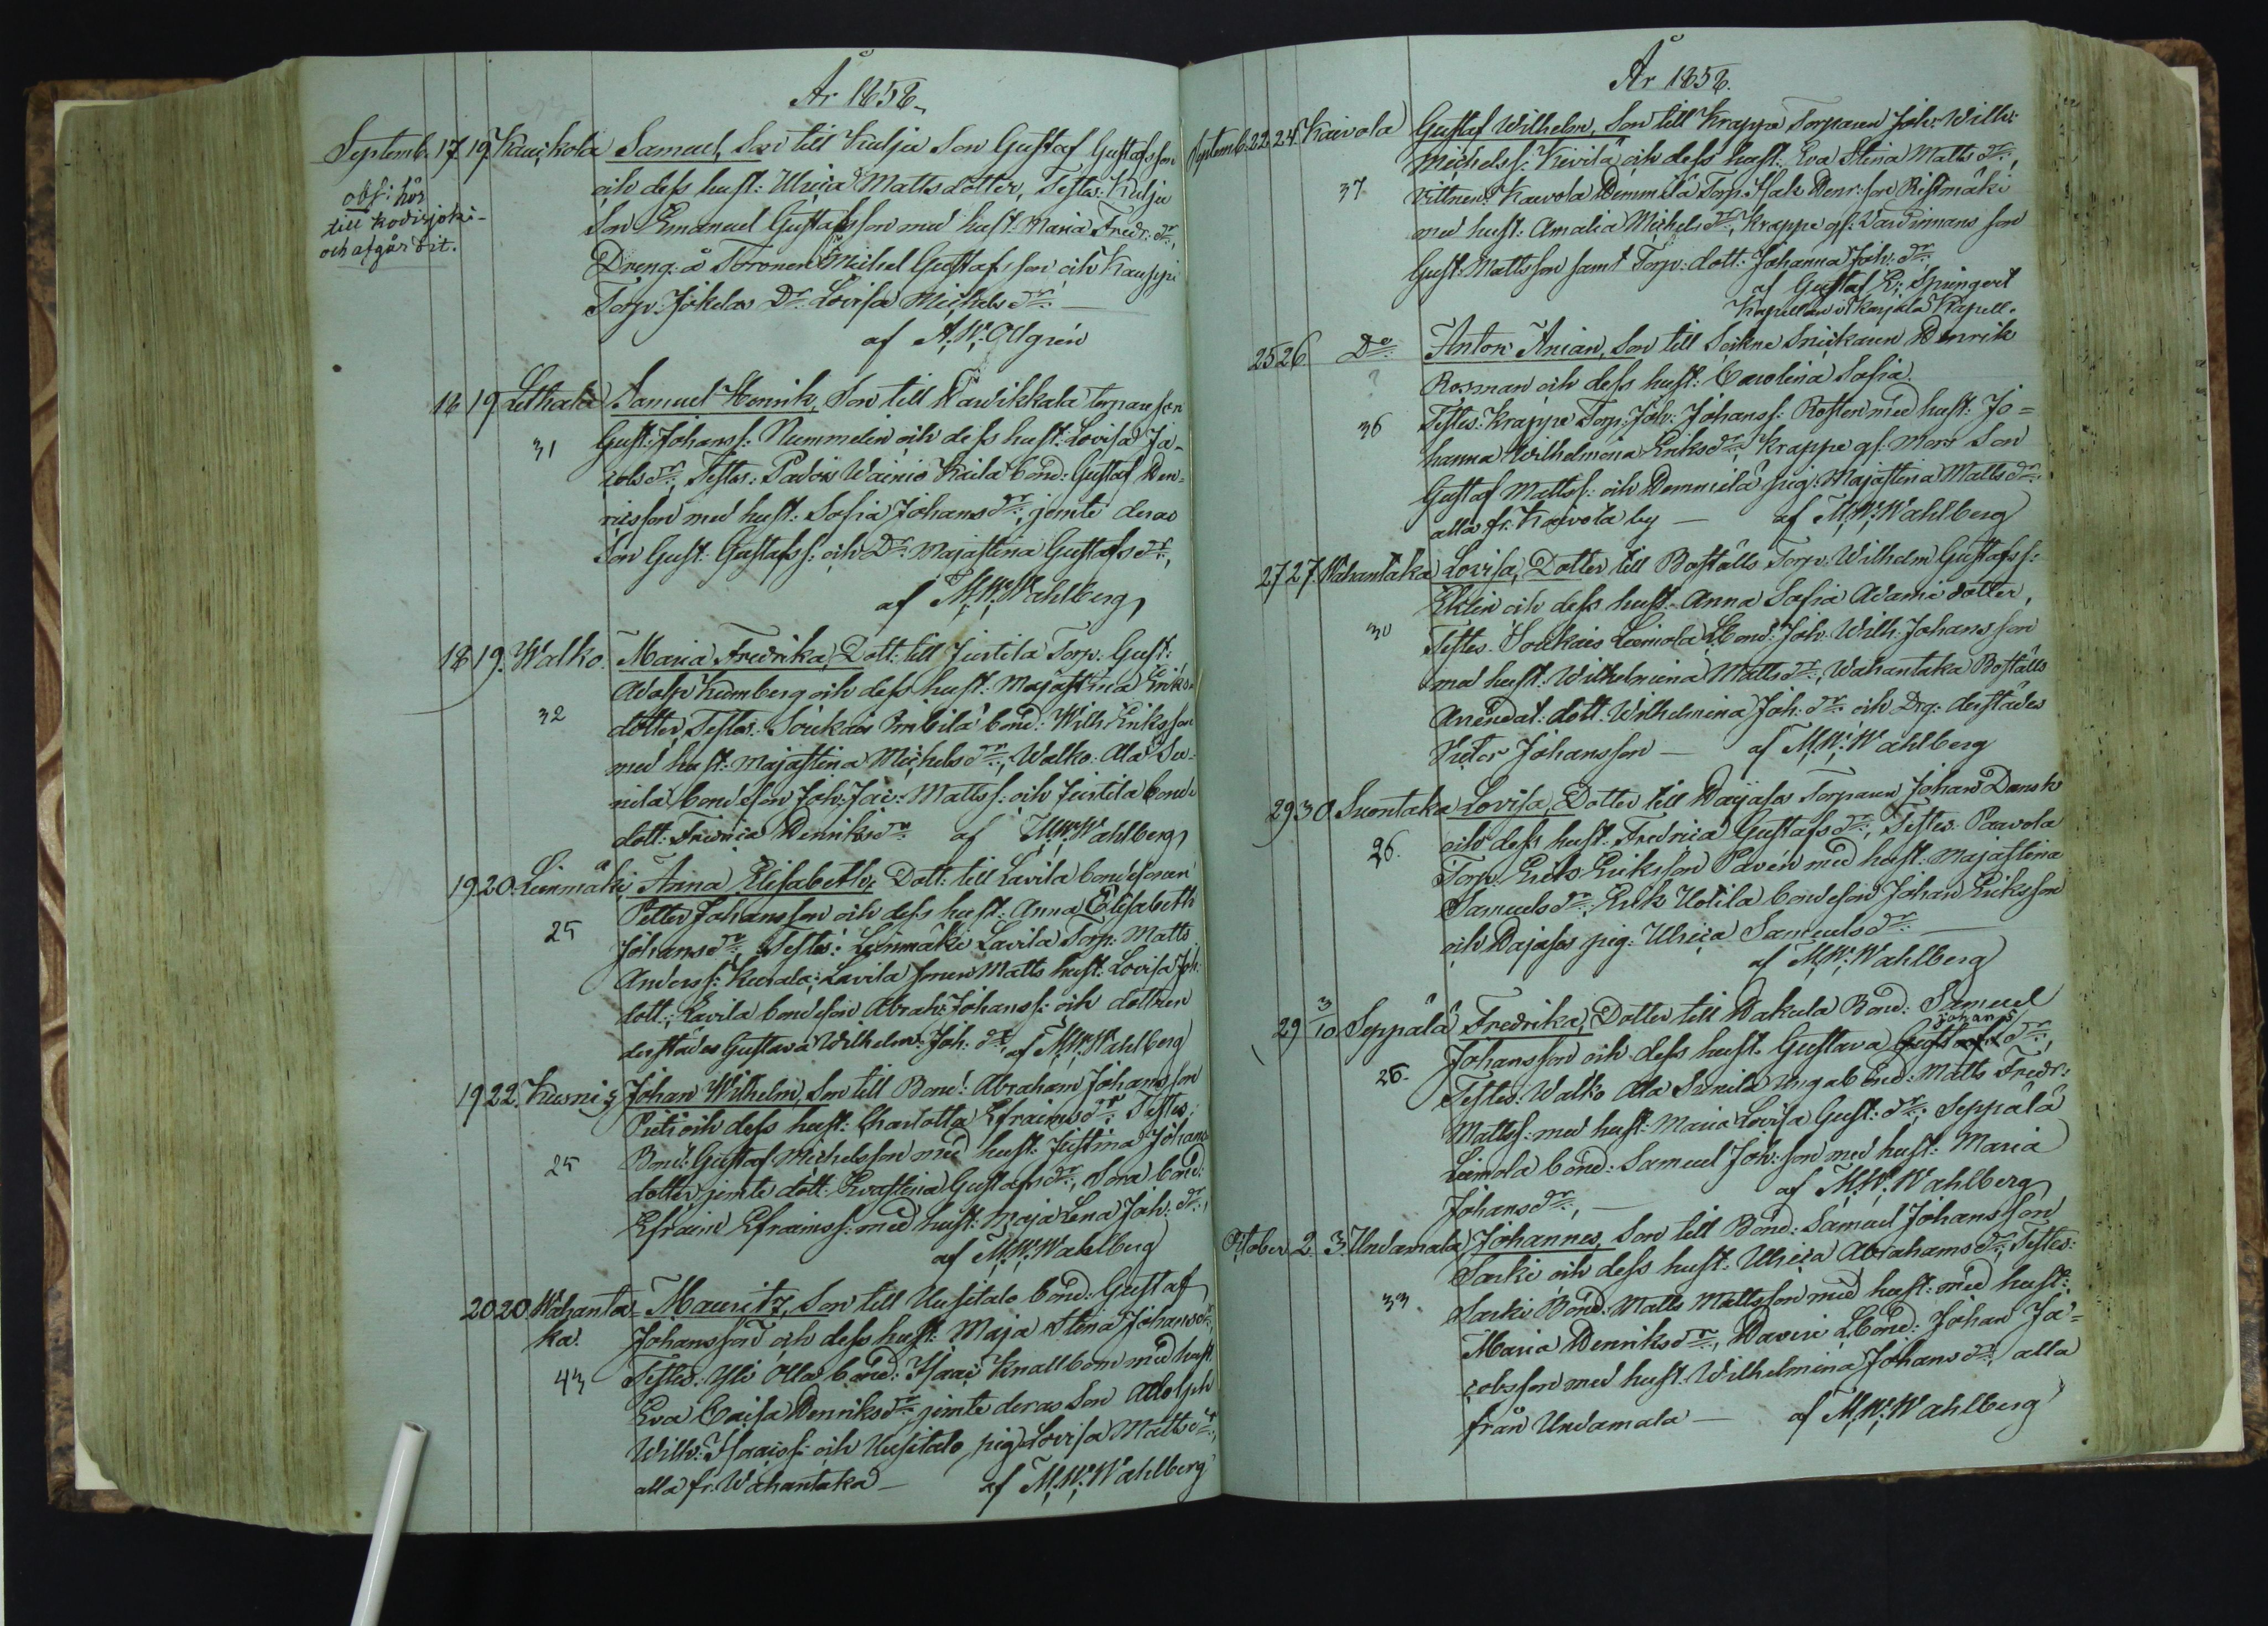 År 1858.
Septemb. 17 19. Kauckola Samuel, Son till Kulju Son Gustaf Gustafsson
obs: hör
till Kodisjoki
och afgår dit.
och dess hust: Ulrica Mattsdotter, Testes: Kulju
Son Emanuel Gustafsson med hust: Maria Fredr: dr:,
Dreng: å Toronen Michel Gustafsson och Kauppi
Torp: Jokelas Dr: Lovisa Michels dr: —
af A. W. Allgrén
18 19 Lethala Samuel Henrik, Son till Warvikkala torparson
31
Gust: Johanss: Nummelin och dess hust: Lovisa Ja-
cobs dr:, Testes: Wainio Kaila bond: Gustaf Hen-
ricsson med hust: Sofia Johans dr:, jemte deras
Son Gust: Gustafss: och Dr: Majastina Gustafs dr:,
af M. W. Wahlberg
18 19. Walko. Maria Fredrika, Dott: till Juvtila Torp: Gust:
32
Adolf Kumberg och dess hust: Majastina Eriks-
dotter, Testes: Soukais bond: Wilh: Eriksson
med hust: Majastina Michels dr:, Walko Ala Su-
nila bondeson Joh: Jac: Mattss: och Juvtila bonde
dott: Fredrica Henriks dr: af M. W. Wahlberg
19 20. Leinmäki, Anna Elisabeth, Dott: till Lavila bondesonen
25
Petter Johansson och dess hust: Anna Elisabeth
Johans dr:, Testes: Leinmäki Lavila Torp: Matts
Anderss: Lavila sonen Matts hust: Lovisa Joh:
dott:, Lavila bondeson Abrah: Johanss: och dottren
derstädes Gustava Wilhelm: Joh: dr: af M. W. Wahlberg
19 22. Kusni Johan Wilhelm, Son till Bond: Abraham Johansson
25
och dess hust: Charlotta Efraims dr: Testes;
Bond: Gustaf Michelsson med hust: Justina Johans
dotter jemte dott: Evastina Gustafs dr:, Sora bond:
Efraim Efraimss: med hust: Maja Lena Joh: dr:,
af M. W. Wahlberg
20 20. Wahanta- Mauritz, Son till Uusitalo bond: Gustaf
ka.
43
Johansson och dess hust: Maja Stina Johans dr:
Testes: Yli Olla bond: Isaac Knallbom med hust:
Eva Caisa Henriks dr: jemte deras Son Adolph
Wilh: Isaacs: och Uusitalo pig: Lovisa Matts dr:,
alla fr: Wahantaka — af M. W. Wahlberg
År 1858.
Septemb. 22. 24. Kaivola Gustaf Wilhelm, Son till Krappe Torparen Joh: Wilh:
37
Michelss: Kivilä och dess hust: Eva Stina Matts dr:,
Vittnen: Kaivola Hemmilä Torp: Isak Henr:son Ristmäki
med hust: Amalia Michels dr:, Krappe gf: Vardinmans son
Gust: Mattsson samt Torp: dott: Johanna Joh: dr:
af Gustaf E: Spingert
Kapellan i Karjala Kapell.
25 26. Do: Anton Anian, Son till Sockne Snickaren Henrik
?
36
Rosman och dess hust: Carolina Sofia.
Testes: Krappe Torp: Joh: Johanss: Rosten med hust: Jo=
hanna Wilhelmina Eriks dr:, Krappe gf: mors Son
Gustaf Mattss: och Hemmilä pig: Majastina Matts dr:
alla fr: Kaivola by — af M. W. Wahlberg
27 27. Wahantaka Lovisa, Dotter till Boställs Torp: Wilhelm Gustafss:
30
Eklin och dess hust: Anna Sofia Adami dotter,
Testes: Soukais Leimola Lbond: Joh: Wilh: Johansson
med hust: Wilhelmina Matts dr:, Wahantaka Boställs
Arrendat: dott: Wilhelmina Joh: dr: och Drg: derstädes
Victor Johansson — af M. W. Wahlberg
29 30. Suontaka Lovisa, Dotter till Hajasos Torparen Johan Dansk
26.
och dess hust: Fredrica Gustafs dr:, Testes: Paavola
Torp: Erik Eriksson Pavén med hust: Majastina
Samuels dr:, Erik Uotila bondeson Johan Eriksson
och Hajasos pig: Ulrica Samuels dr: —
af M. W. Wahlberg
29 3/10 Seppälä Fredrika, Dotter till Hakula Bond: Samuel
26.
Johansson och dess hust: Gustava Johans dr:,
Testes: Walko Ala Sunila Ungabond: Matts Fredr:
Mattss: med hust: Maria Lovisa Gust: dr:, Seppälä
Leimola bond: Samuel Joh:son med hust: Maria
Johans dr:, — af M. W. Wahlberg
October 2. 3. Undamala Johannes, Son till Bond: Samuel Johansson
33
Sarki och dess hust: Ulrica Abrahams dr:, Testes:
Sarki Bond: Matts Mattsson med hust: med hust:
Maria Henriks dr:, Haveri Lbond: Johan Ja=
cobsson med hust: Wilhelmina Johans dr:, alla
från Undamala — af M. W. Wahlberg